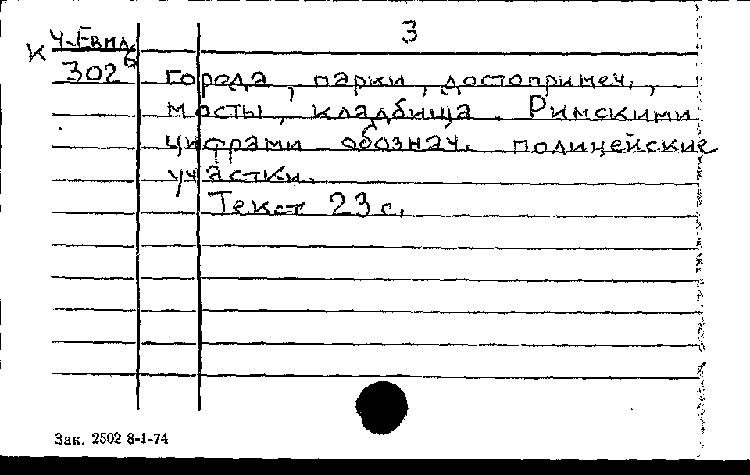 3
К
302
города, парки, достопримеч.,
мосты, кладбища. Римскими
цифрами обознач. полицейские
участки.
Текст 23 с.
Зак. 2502 8-1-74